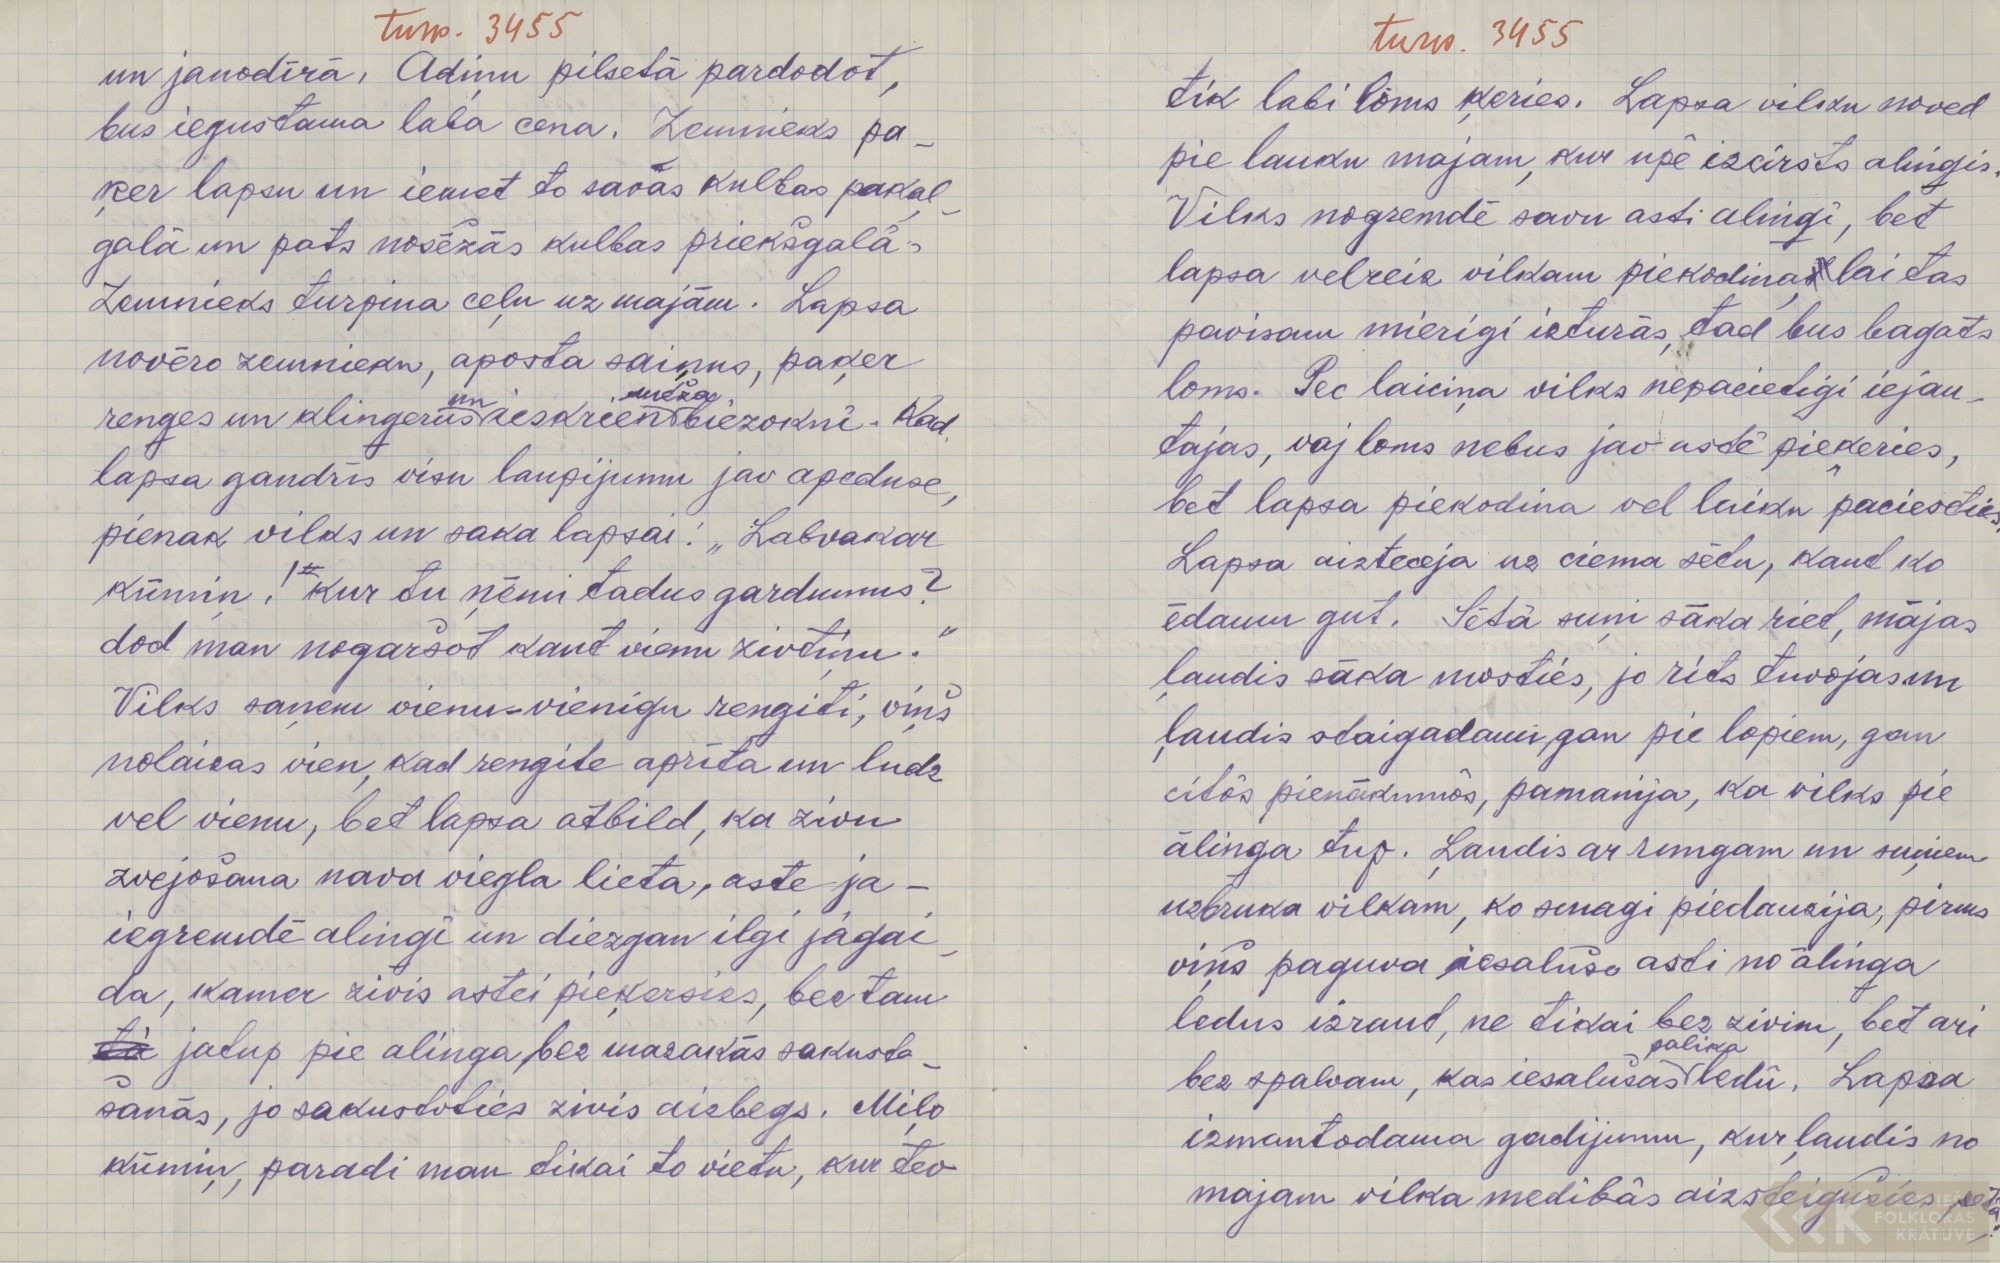 turp. 3455
un janodīrā, Adiņu pilsetā pardodot,
bus iegustama laba cena. Zemnieks pa-
ķer lapsu un iemet to savās kulbas pakaļ-
galā un pats nosēžās kulbas priekšgalā.
Zemnieks turpina ceļu uz majām. Lapsa
novēro zemnieku, aposta saiņus, paķer
renges un klingerūs un ieskrien meža biezoknī. Kad
lapsa gandrīs visu laupijumu jav apeduse,
pienak vilks un saka lapsai: „Labvakar
kūmiņ! Kur tu ņēmi tadus gardumus?
dod man nogaršot kaut vienu zivtiņu."
Vilks saņem vienu-vienigu rengiti, viņš
nolaizas vien, kad rengite aprīta un ludz
vel vienu, bet lapsa atbild, ka zivu
zvejošana nava viegla lieta, aste ja-
iegremdē alingī un diezgan ilgi jagai-
da, kamer zivis astei pieķersies, bec tam
jatup pie alinga, bez mazakās sakusta-
šanās, jo sakustoties zivis aizbegs. Miļo
kūmiņ, paradi man tikai to vietu, kur tev
turp. 3455
tik labi loms ķeries. Lapsa vilku noved
pie lauku majam, kur upē izcirsts alingis.
Vilks nogremdē savu asti alingī, bet
lapsa velreiz vilkam piekodina, lai tas
pavisam mierigi izturās, tad bus bagats
loms. Pec laiciņa vilks nepacietigi iejau-
tajas, vaj loms nebus jav astē pieķeries,
bet lapsa piekodina vel laiku paciesties,
Lapsa aizteceja uz ciema sētu, kaut ko
ēdamu gut. Sētā suņi sāka riet, mājas
ļaudis sāka mosties, jo rits tuvojas un
ļaudis staigadami, gan pie lopiem, gan
citōs pienākumōs, pamanija, ka vilks pie
ālinga tup. Ļaudis ar rungam un suņiem
uzbruka vilkam, ko smagi piedauzija, pirms
viņš paguva iesalušo asti no ālinga
ledus izraut, ne tikai bez zivim, bet ari
bez spalvam, kas iesalušas palika ledū. Lapsa
izmantodama gadijumu, kur ļaudis no
majam vilka medibās aizsteigušies, sētā
FOLKLORAS
KRĀTUVE